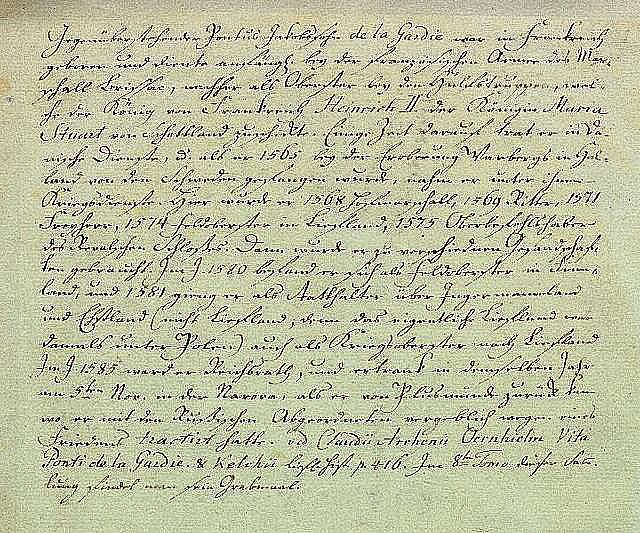 Gegenüberstehender Pontus Jakobsohn de la Gardie war in Frankreich
geboren und diente anfangs bey der französischen Armee des Mar-
schall Brissac, nachher als Oberster bey den Hülfstruppen, wel-
che der König von Frankreich Heinrich II der Königin Maria
Stuart von Schottland zuschickte. Einige Zeit darauf trat er in Dä-
nische Dienste, u. als er 1565 bey der Eroberung Warbergs in Hal-
land von den Schweden gefangen wurde, nahm er unter ihnen
Kriegsdienste. Hier wurde er 1568 Hofmarschall, 1569 Ritter, 1571
Freyherr, 1574 Feldoberster in Liefland, 1575 Oberbefehlshaber
des Revalschen Schlosses. Dann wurde er zu verschiednen Gesandschaf-
ten gebraucht. Im J. 1580 befand er sich als Feldoberster in Finn-
land, und 1581 gieng er als Statthalter über Ingermanneland
und Ehstland (nicht Liefland, denn das eigentliche Liefland war
damals unter Polen) auch als Kriegsoberster nach Liefland
Im J 1585 ward er Reichsrath, und ertrank in demselben Jahr
am 5ten Nov. in der Narova, als er von Plusmünde zurück kam
wo er mit den Russischen Abgeordneten vergeblich wegen eines
Friedens tractirt hatte. vid Claudii Arrhenii Oernhielm Vita
Ponti de la Gardie. & Kelchii Liefl. Hist. p. 416. Im 8ten Tomo dieser Sam-
lung findet man sein Grabmaal.